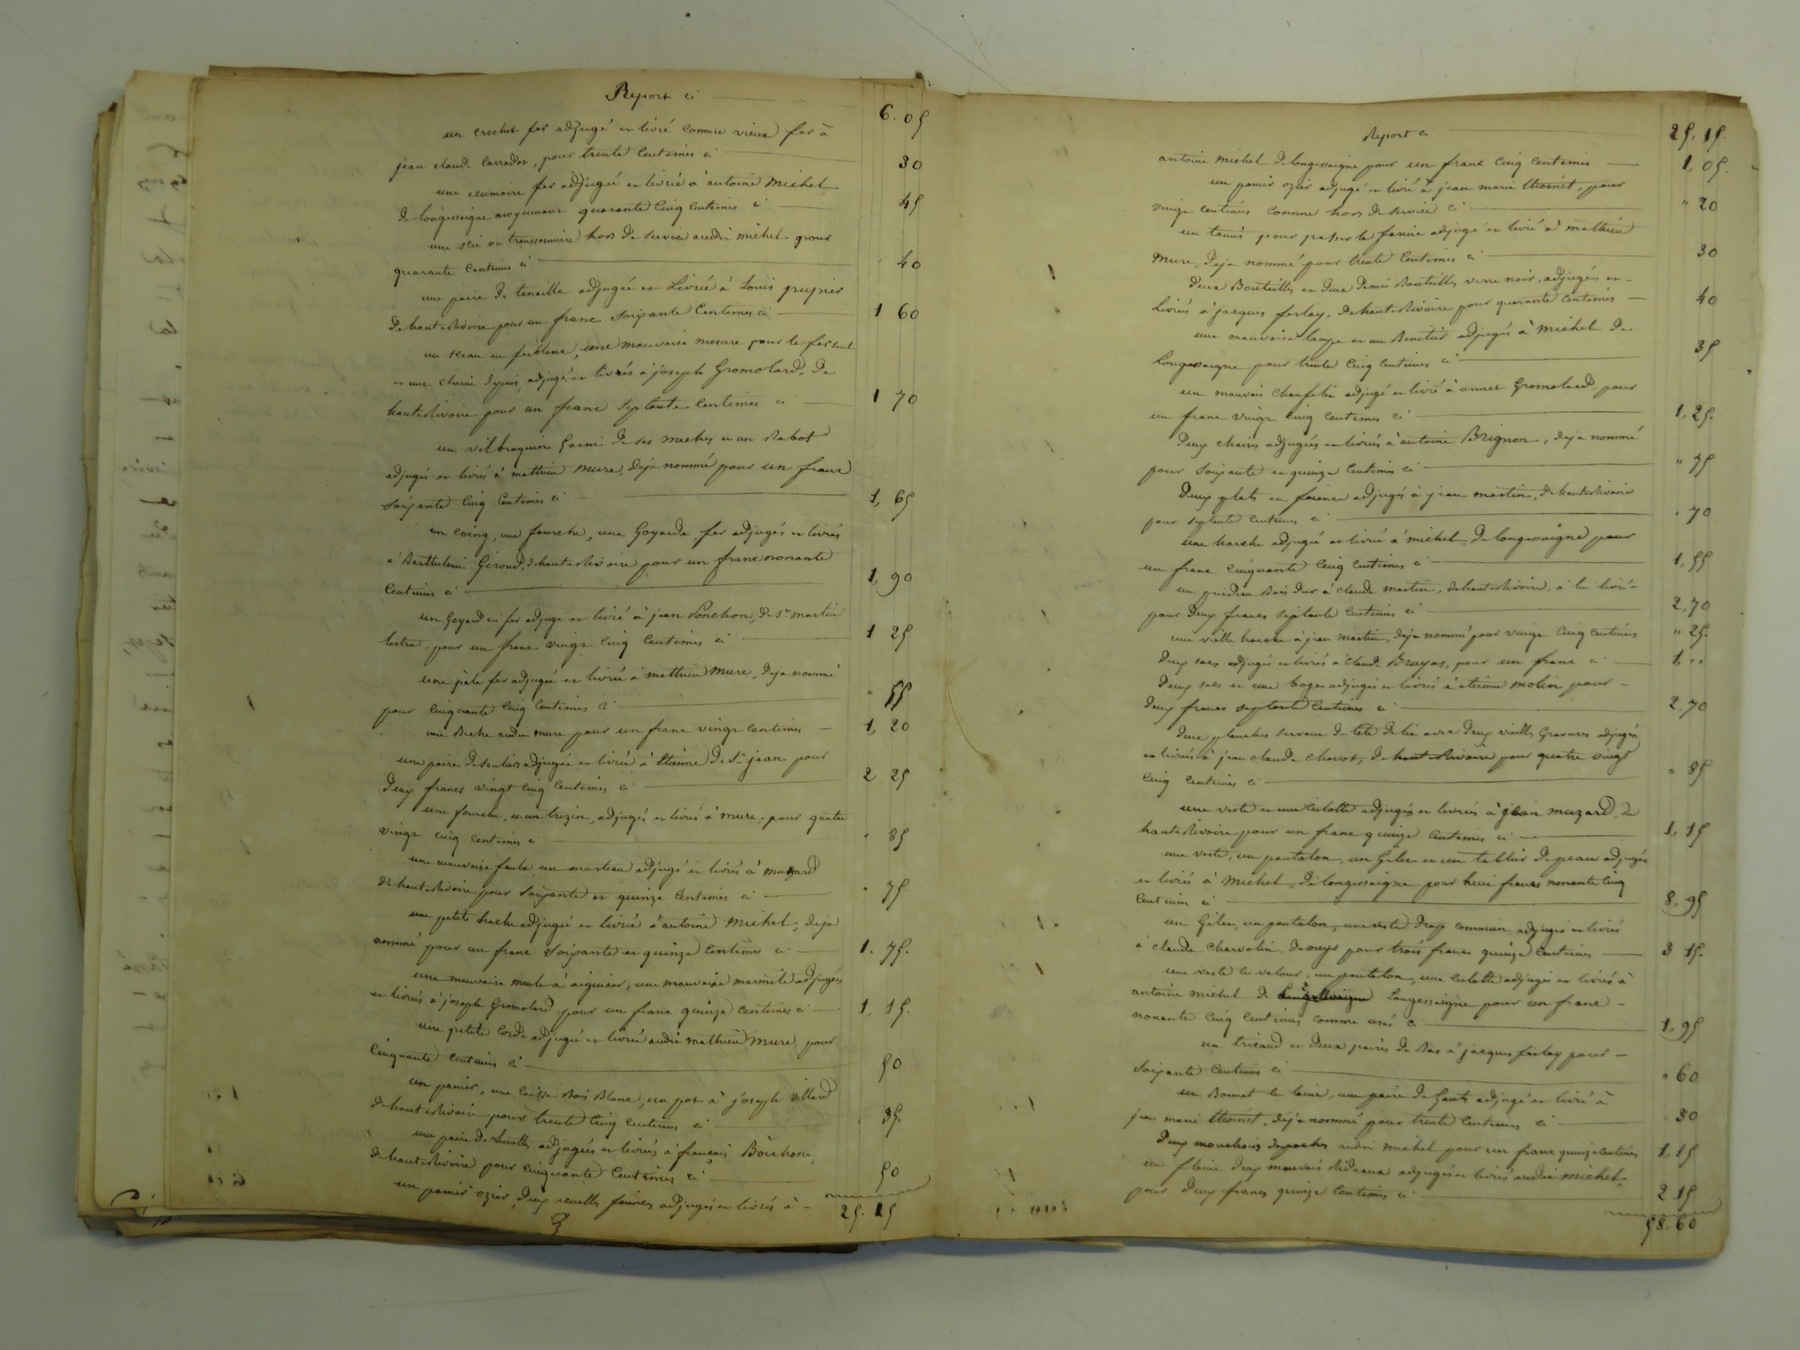 Report ci 6.05
un crochet fer adjugé et livré comme vieux fer à
jean claude Carradot, pour trente Centimes ci 30
une ecumoire fer adjugée et livrée à antoine Michel
de longessaigne moyennant quarante Cinq Centimes ci 45
une scie ou hors de service audit michel pour
quarante Centimes ci 40
une paire de tenaille adjugée et Livrée à Louis pupier
de hauterivoire pour un franc Soixante Centimes ci 1 60
un sceau en ferblanc, une mauvaise mesure pour le
et une chaine adjugés et livrés à joseph Gromolard, de
hauterivoire pour un franc Septante Centimes ci 1 70
un vilbroquin Garni de ses meches et un Rabot
adjugés et livrés à mathieu Mure, deja nommé pour un franc
Soixante Cinq Centimes ci 1, 65
un coing, une fourche, une Goyarde, fer adjugés et livrés
à Barthelemi Giroud, d'hauterivoire pour un franc nonante
Centimes ci 1, 90
un Goyard en fer adjugé et livré à jean Ponchon, de St martin
lestra, pour un franc vingt Cinq Centimes ci 1 25
une pêle fer adjugée et livrée à mathieu Mure, deja nommé
pour Cinquante Cinq Centimes ci " 55
une Beche audit mure pour un franc vingt centimes 1, 20
une paire de souliers adjugée et livrée à Etienne de St jean pour
deux francs vingt Cinq Centimes ci 2 25
une fourche, et un adjugés et livrés à mure, pour quatre
vingt Cinq centimes ci " 85
une mauvaise faulx, un marteau adjugé et livrés à muzard
de hauterivoire pour soixante et quinze Centimes ci " 75.
une petite hache adjugée et livrée à antoine Michel, deja
nommé pour un franc Soixante et quinze Centimes ci 1. 75.
une mauvaise meule à aiguiser, une mauvaise marmite adjugées
et livrées à joseph Gromolard pour un franc quinze Centimes ci 1, 15.
une petite Corde adjugée et livrée audit mathieu Mure, pour
Cinquante Centimes ci 50
un panier, une Caisse Bois Blanc, un pot à joseph villard
de hauterivoire pour trente Cinq Centimes ci 35.
une paire de Lunettes adjugées et livrées à françois Boichon,
de hauterivoire pour Cinquante Centimes ci 50
un panier ozier, deux ecuelles adjugés et livrés à 25. 15
Report ci 25. 15.
antoine michel de longessaigne pour un franc Cinq Centimes 1, 05.
un panier ozier adjugé et livré à jean marie thoinet, pour
vingt centimes Comme hors de service ci " 20
un tamis pour passer la farine adjugé et livré à mathieu
Mure, deja nommé pour trente Centimes ci 30
deux Bouteilles et deux demies Bouteilles verre noir, adjugées et
Livrées à jacques ferlay, de hauterivoire pour quarante Centimes 40
une mauvaise lampe et un Benitier adjugés à Michel de
longessaigne pour trente Cinq Centimes ci 35
un mauvais adjugé et livré à annet Gromolard, pour
un franc vingt Cinq Centimes ci 1, 25.
deux chaises adjugées et livrées à antoine Brignon, deja nommé
pour Soixante et quinze Centimes ci " 75
deux plats en faience adjugés à jean martin, de hauterivoire
pour septante Centimes ci " 70
une hache adjugée et livrée à michel, de longessaigne pour
un franc Cinquante Cinq Centimes ci 1, 55
un Bois dur à claude martin, de hauterivoire, à lui livré
pour deux francs septante Centimes ci 2, 70
une vieille hache à jean martin, deja nommé pour vingt Cinq Centimes " 25.
deux sacs adjugés et livrés à claude Bruyas, pour un franc ci 1, "
deux sacs et une adjugés et livrés à etienne molin pour
deux francs septante Centimes ci 2, 70
deux planches servant de tête de lit avec deux vieilles Gravures adjugés
et livrés à jean claude Chavot, de hauterivoire pour quatre vingt
Cinq Centimes ci " 85
une veste et une Culotte adjugées et livrées à jean muzard, de
hauterivoire pour un franc quinze Centimes ci 1, 15
une veste, un pantalon, un Gilet et un tablier de peau adjugés
et livrés à Michel, de longessaigne pour huit francs nonante Cinq
Centimes ci 8, 95
un Gilet, un pantalon, une veste drap commun adjugés et livrés
à claude Charvolin, de meys pour trois francs quinze Centimes 3 15.
une veste de velour, un pantalon, une Culotte adjugés et livrés à
antoine michel de Longessaigne pour un franc
nonante Cinq Centimes comme usés ci 1, 95
un tricaud et deux paires de Bas à jacques ferlay pour
Soixante Centimes ci " 60
un Bonnet de laine, une paire de Gants adjugé et livré à
jean marie thoinet, deja nommé pour trente Centimes ci 30
deux mouchoirs de poches audit Michel pour un franc quinze Centimes 1, 15
une deux mauvais Rideaux adjugés et livrés audit michel,
pour deux francs quinze Centimes ci 2 15
58. 60